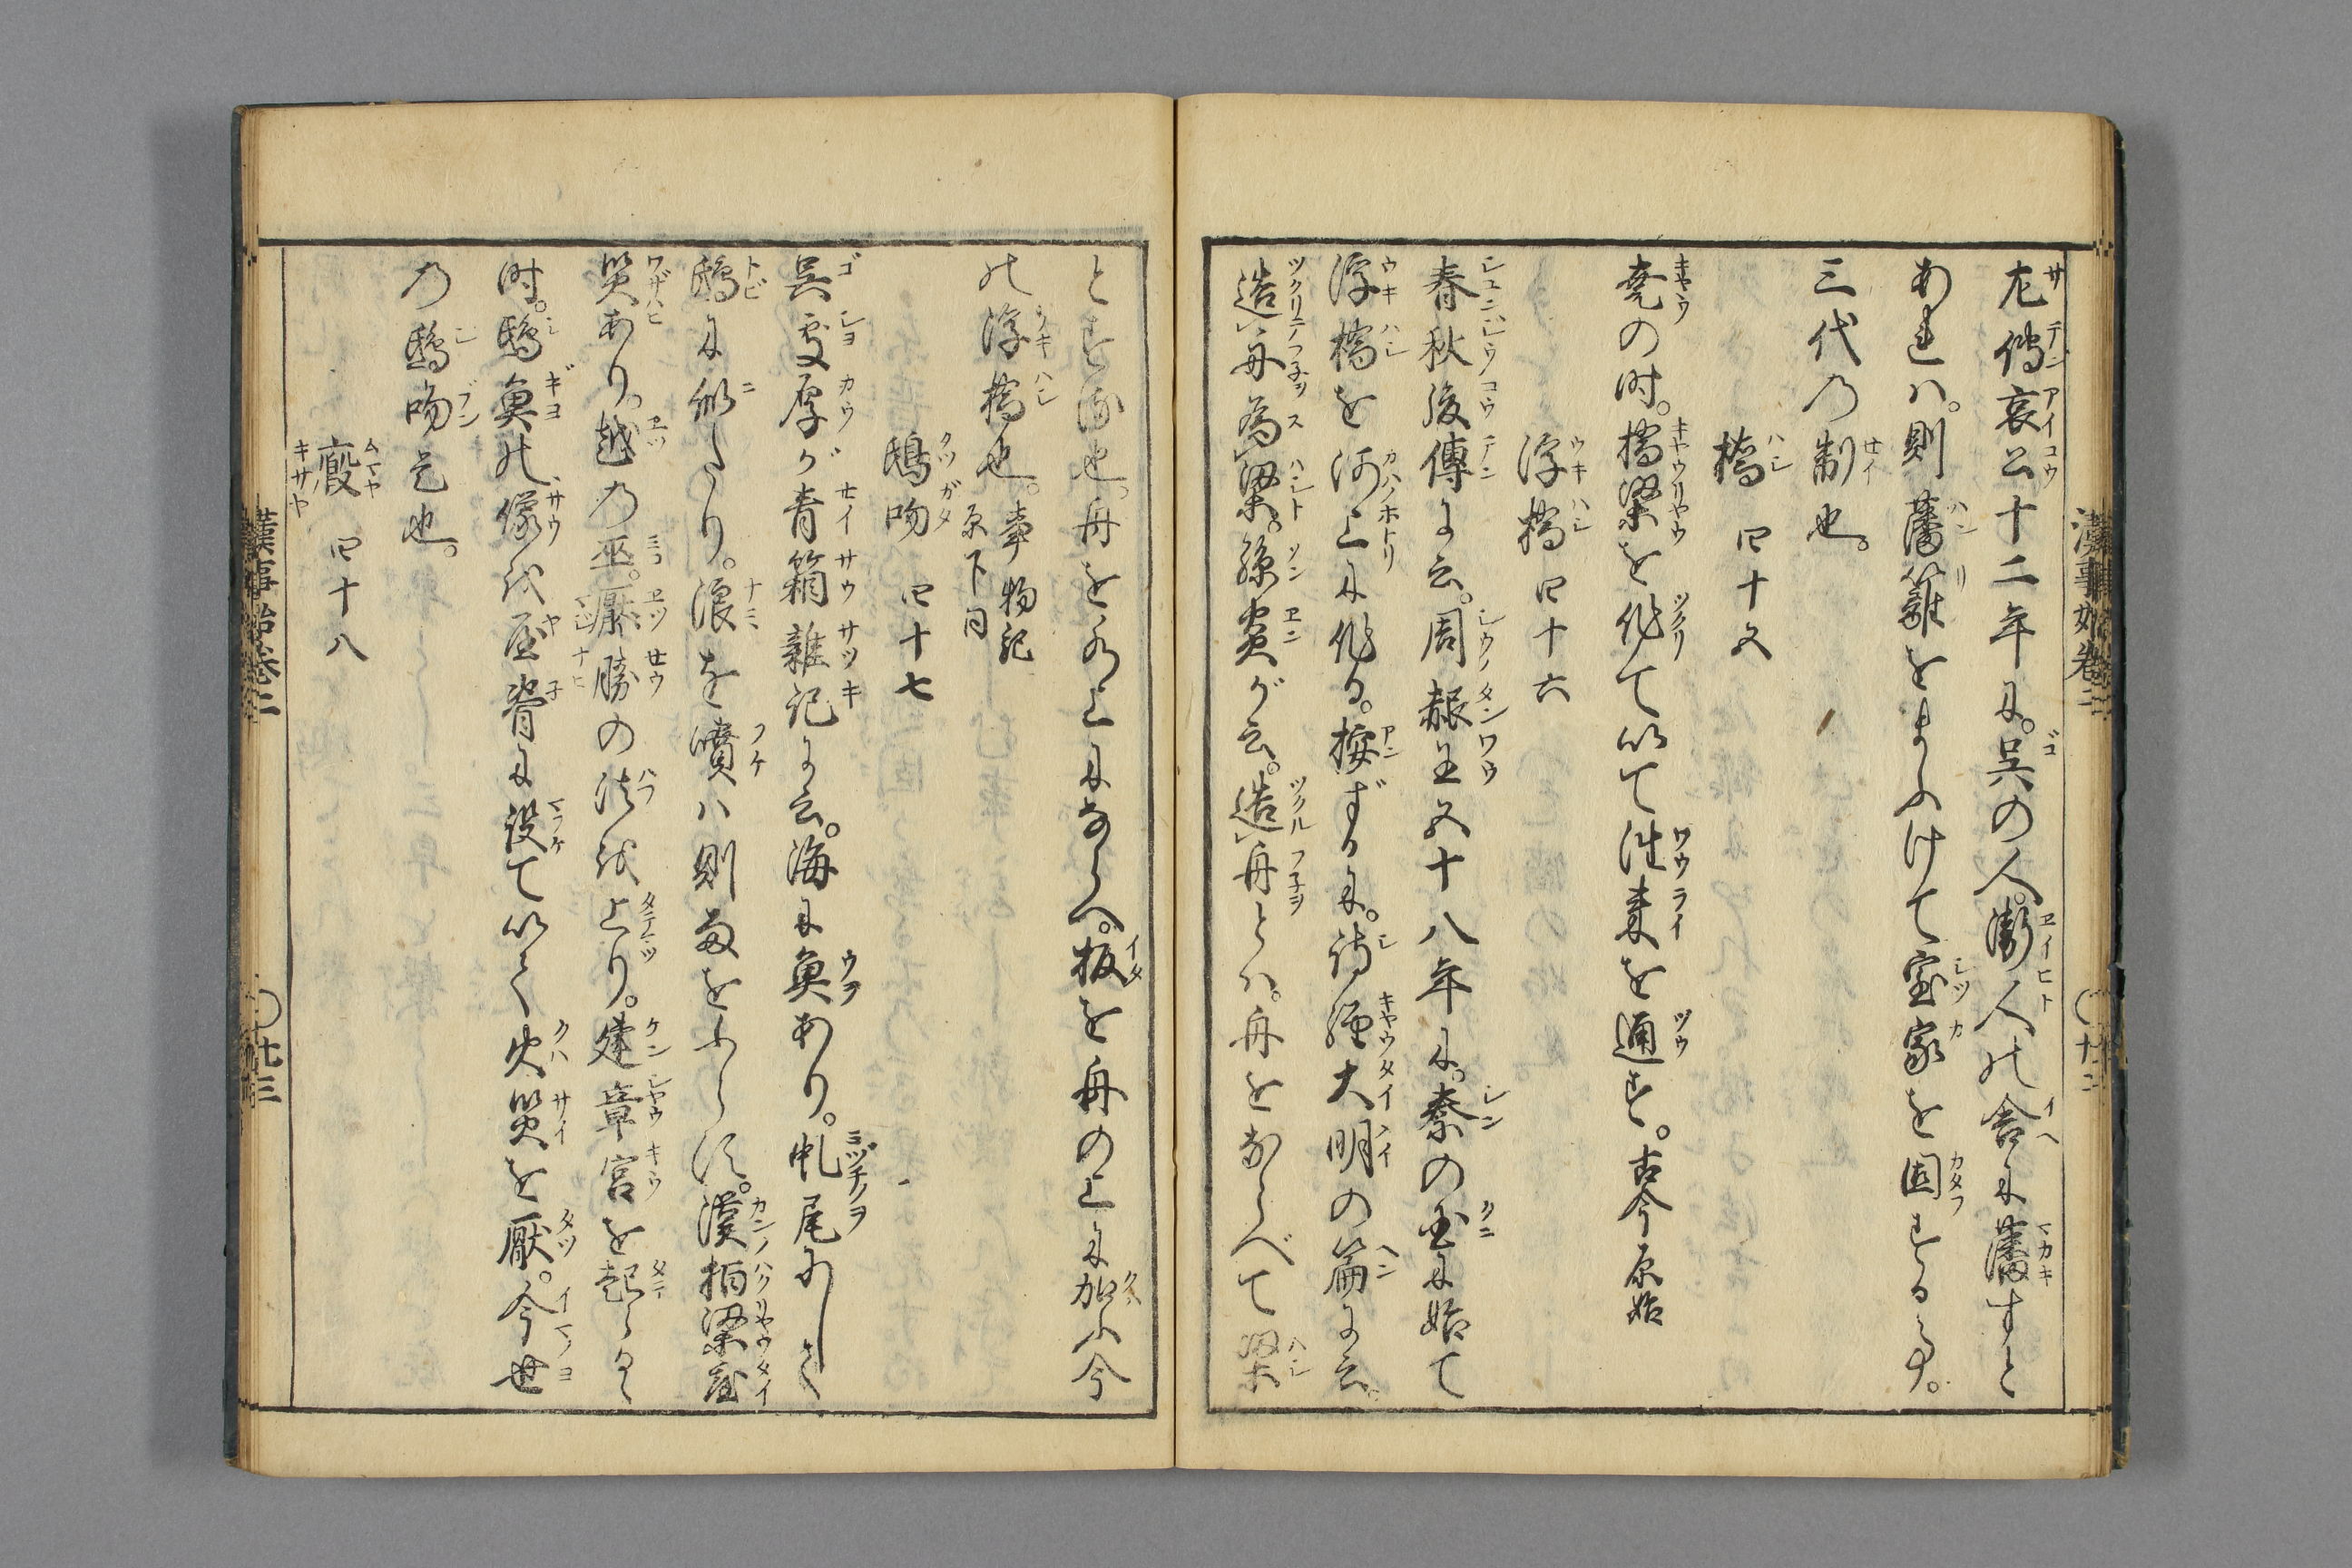 左傳哀公十二年に。呉の人。衞人の舎に藩すと
あれハ。則藩籬をまふけて、室家を固する事。
三代の制也。
橋 四十五
堯の時。橋梁を作て以て往来を通ず。古今原始
浮橋 四十六
春秋後傳に云。周赧王五十八年に。秦の国に始て
浮橋を河上に作る。按ずるに。詩經大明の篇に云。
造舟為梁。孫炎が云。造舟とハ。舟をならべて梁
とする也。舟を水上にならべ。板を舟の上に加ふ今
の浮橋也。事物紀
原下同
鴟吻 四十七
呉處厚が青箱雜記に云。海に魚あり。虬尾にして
鴟に似たり。浪を噴ハ則雨をふらす。漢柏梁臺
災あり。越の巫。厭勝の法を上り。建章宮を起らるゝ
時。鴟魚の像を屋脊に設て以て火災を厭。今世
の鴟吻是也。
廄 四十八
漢事始巻二
漢事始巻二
〇十三